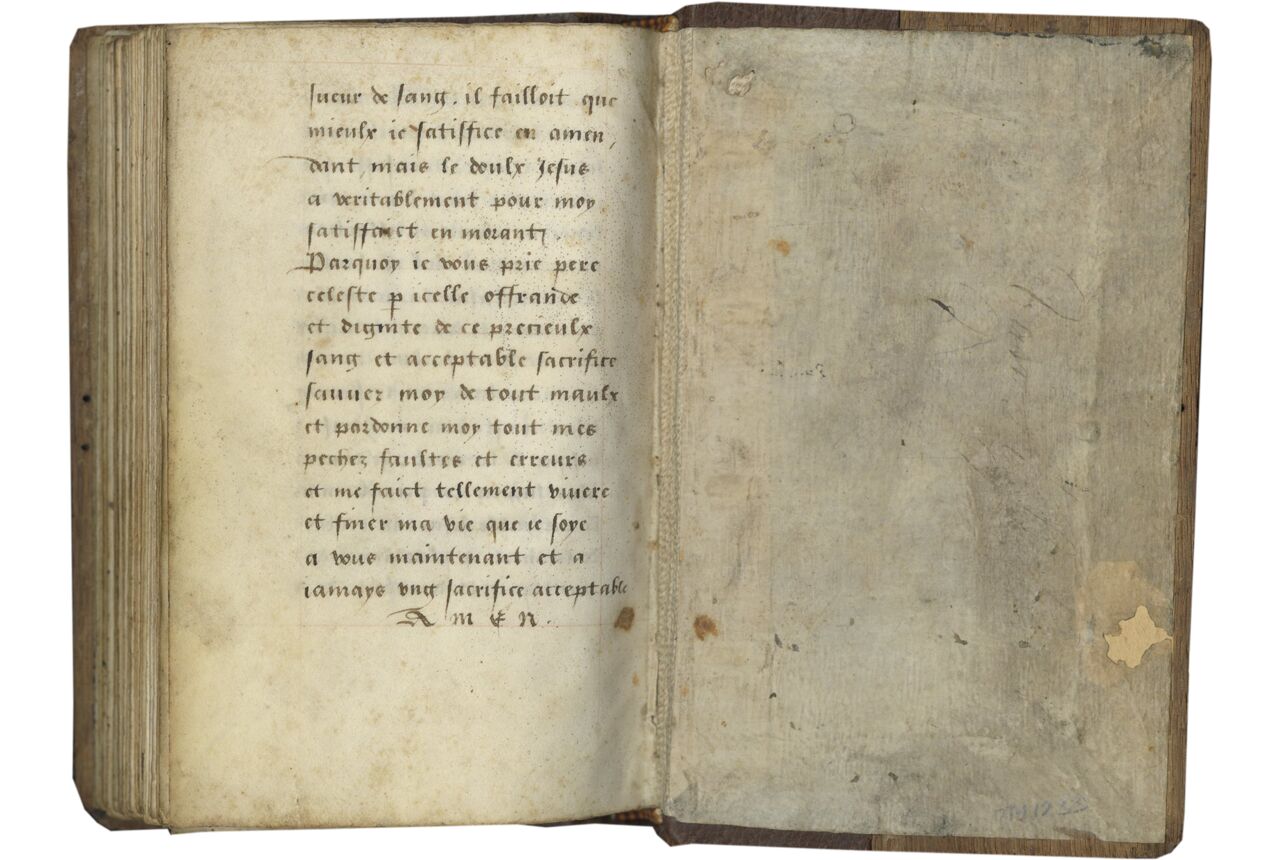 sueur de sang. il failloit que
mieulx ie satiffice en amen,
dant, mais le doulx Jesus
a veritablement pour moy
satiffaict en morant.
Parquoy ie vous prie pere
celeste p icelle offrande
et dignite de ce precieulx
sang et acceptable sacrifice
sauuez moy de tout maulx
et pardonne moy tout mes
pechez faultes et erreurs
et me faict tellement viuere
et finer ma vie que ie soye
a vous maintenant et a
iamays vng sacrifice acceptable
AMEN.